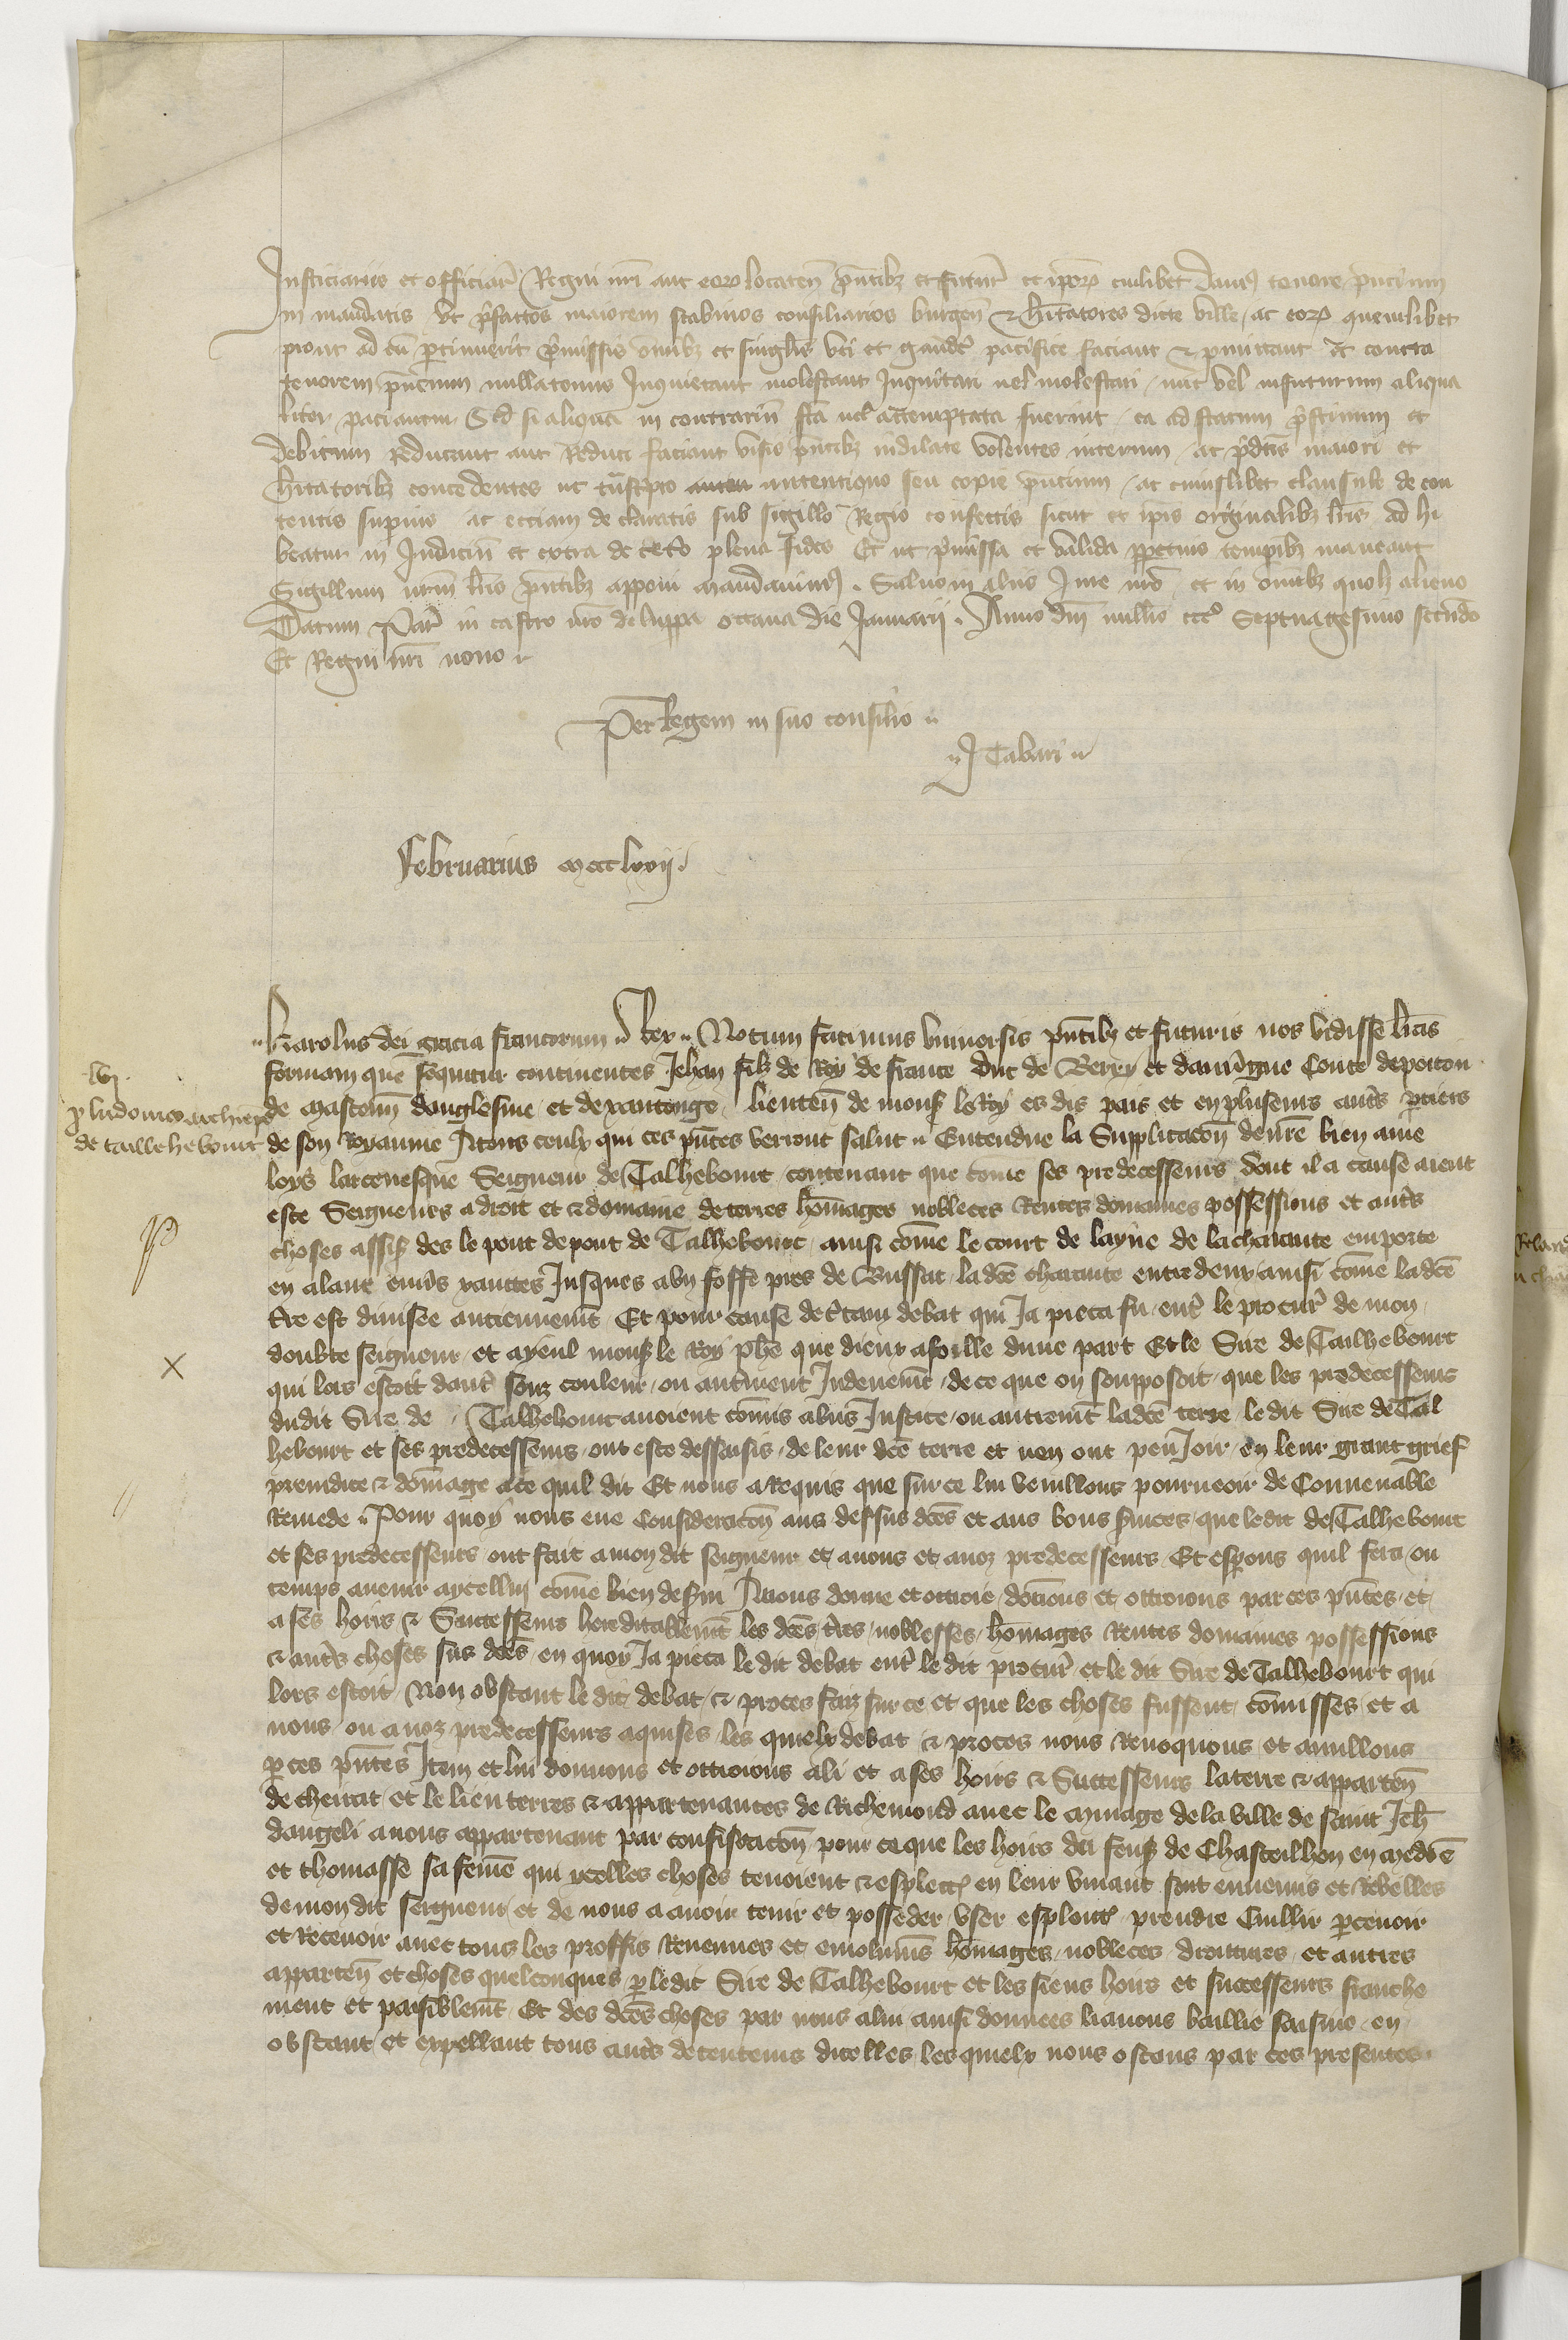 Justiciariis et officiar Regni nri aut eorum locaten pntibz et futur et ipor cuilibet damus tenore pncium
in mandatis ut pfattos maiorem scabinos consiliarios burgen & hitatores dicte ville ac eorum quemlibet
prout ad eu ptinuerit pmissis omibz et singlis uti et gaud pacifice faciant & pmittant Et contra
tenorem pncium nullatenus Inquietant molestant Inquietari vel molestari nuc vel infuturum aliqua
liter paciantur Sed si aliqua in contrariu fca vel attemptata fuerint ea ad statum pstinum et
debitum reducant aut Reduci faciant visis pntibz indilate volentes iterum ac pdcis maiori et
hitatoribz concedentes ut tnscpto autentiquo seu copie pncium ac cuiuslibet clausule de con
tentis supius ac eciam declaratis sub sigillo Regio confectis sicut et ipis orginalibz lris ad hi
beatur in Judiciu et extra de ceto plena fides Et ut pmissa et valida ppetuis tempibz maneant
Sigillum nrm lris pntibz apponi mandauimus Saluo in aliis Jure nro et in omibz quolz alieno
Datum Par in castro nro de luppa octaua die Januarii Anno dni millio ccco Septuagesimo secundo
Et Regni nri nono
Per Regem in suo consilio
J Tabari
Februarius mccclxxij
Karolus dei gracia francorum Rex Notum facimus vniuersis pntibz et futuris nos vidisse lras
formam que sequitur continentes Jehan filz de Roy de france duc de Berry et dauuigne Conte de poitou
de masconn dangolesme et de xantonge lieuten de mons le Roy es dis pais et en pluseurs autrs pties
de son Royaume Atous ceulx qui ces pntes verront salut Entendue la Supplicacon de nre bien ame
loys larceuesque Seigneur de Talhebourt contenant que come ses predecesseurs dont il a cause aient
este Seigneurs a droit et a domaine de terres homages nobleces Rentes domaines possessions et autrs
choses assis des le pont de pont de Talhebourt ainsi come le court de layue de la charante emporte
en alant enuis xanctes Jusques a vn fosse pres de Bussac ladce charante entredeux ainsi come ladce
tre est diuisee anciennemt Et pour cause de ctain debat qui Ja pieca fu entr le procur de mon
doubte seigneur et ayeul mons le Roy phe que dieux absoille dune part Et le Sire de Tailhebourt
qui lors estoit dautr souz couleur ou autrement Indeuemt de ce que on supposoit que les predecesseurs
dudit Sire de Talhebourt auoient comis abus Justice ou autremt ladce terre le dit Sire de Tal
hebourt et ses predecesseurs ont este dessaisis de leur dce terre et nen ont peu Joir en leur grant grief
preiudice & domage ace quil dit Et nous a Requis que sur ce lui veuillons pourueoir de Conuenable
Remede Pour quoy nous eue Consideracon aus dessus dces et aus bons suices que ledit de Talhebourt
et ses predecesseurs ont fait a mon dit seigneur et a nous et a noz predecesseurs Et espons quil fera ou
temps auenir aycelluy come bien desui Auons donne et ottroie donons et ottroions par ces pntes et
a ses hoirs & Successeurs hereditablemt les dces tres noblesses homages Rentes domaines possessions
& autrs choses sus dces en quoy Ja pieca le dit debat entr le dit procur et le dit Sire de Talhebourt qui
lors estoit Non obstant le dit debat & proces faiz sur ce et que les choses fussent comisses et a
nous ou a noz predecesseurs aquises les quielx debat & proces nous Reuoquons et anullons
p ces pntes Item et lui donnons et ottroions a li et a ses hoirs & Successeurs la terre & apparten
de cherat et le lieu terres & appartenances de Richemond auec le mynage de la ville de saint Jeh
dangeli a nous appartenant par confiscacon pour ce que les hoirs du feus de Chasteilhon en medoc
et thomasse sa feme qui ycelles choses tenoient & esplect en leur viuant sont ennemis et Rebelles
de mon dit seigneur et de nous a auoir tenir et posseder vser esploit prendre Cuillir pceuoir
et Receuoir auec tous les proffis Reuenues et emolumes homages nobleces droittures et autres
apparten et choses quelconques p ledit Sire de Talhebourt et les siens hoirs et successeurs franche
ment et paisiblemt Et des dces choses par nous a lui ainsi donnees li auons baillie saisine en
obstant et expellant tous autrs detenteurs dicelles les quielx nous ostons par ces presentes
lvj
p ludouico archiepo
de taillehebourt